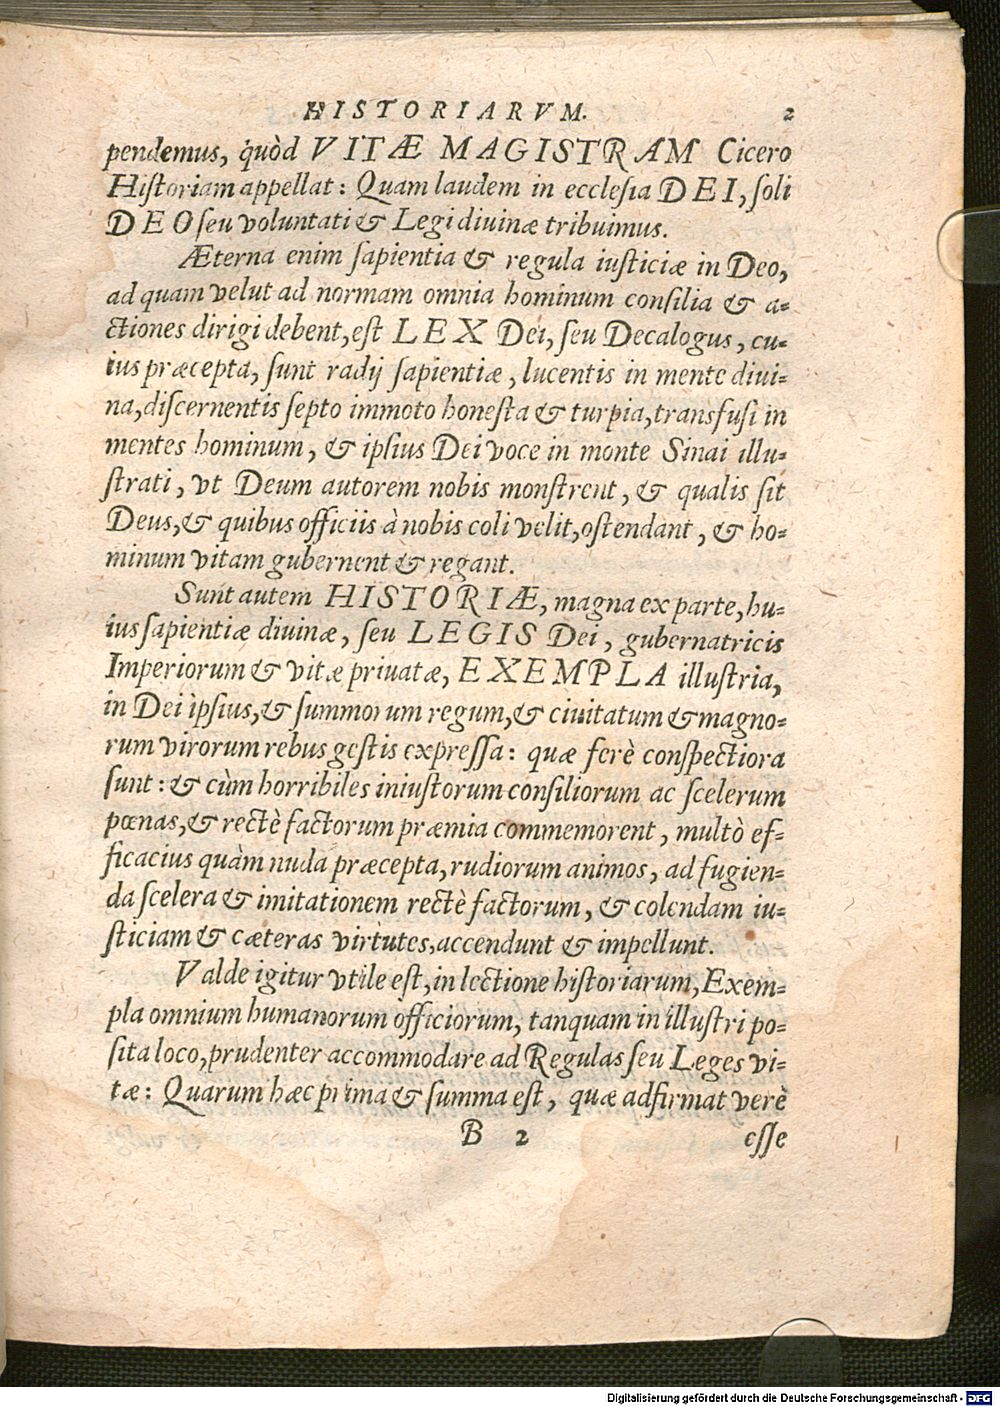 HISTORIARVM. 2
pendemus, quòd VITÆ MAGISTRAM Cicero
Historiam appellat: Quam laudem in ecclesia DEI, soli
DEO seu voluntati & Legi diuinæ tribuimus.
Æterna enim sapientia & regula iusticiæ in Deo,
ad quam velut ad normam omnia hominum consilia & a-
ctiones dirigi debent, est LEX Dei, seu Decalogus, cu-
ius præcepta, sunt radij sapientiæ, lucentis in mente diui-
na, discernentis septo immoto honesta & turpia, transfusi in
mentes hominum, & ipsius Dei voce in monte Sinai illu-
strati, vt Deum autorem nobis monstrent, & qualis sit
Deus, & quibus officiis à nobis coli velit, ostendant, & ho-
minum vitam gubernent & regant.
Sunt autem HISTORIÆ, magna ex parte, hu-
ius sapientiæ diuinæ, seu LEGIS Dei, gubernatricis
Imperiorum & vitæ priuatæ, EXEMPLA illustria,
in Dei ipsius, & summorum regum, & ciuitatum & magno-
rum virorum rebus gestis expressa: quæ ferè conspectiora
sunt: & cùm horribiles iniustorum consiliorum ac scelerum
pœnas, & rectè factorum præmia commemorent, multò ef-
ficacius quàm nuda præcepta, rudiorum animos, ad fugien-
da scelera & imitationem rectè factorum, & colendam iu-
sticiam & cæteras virtutes, accendunt & impellunt.
Valde igitur vtile est, in lectione historiarum, Exem-
pla omnium humanorum officiorum, tanquam in illustri po-
sita loco, prudenter accommodare ad Regulas seu Leges vi-
tæ: Quarum hæc prima & summa est, quæ adfirmat verè
B 2 esse
Digitalisierung gefördert durch die Deutsche Forschungsgemeinschaft - DFG